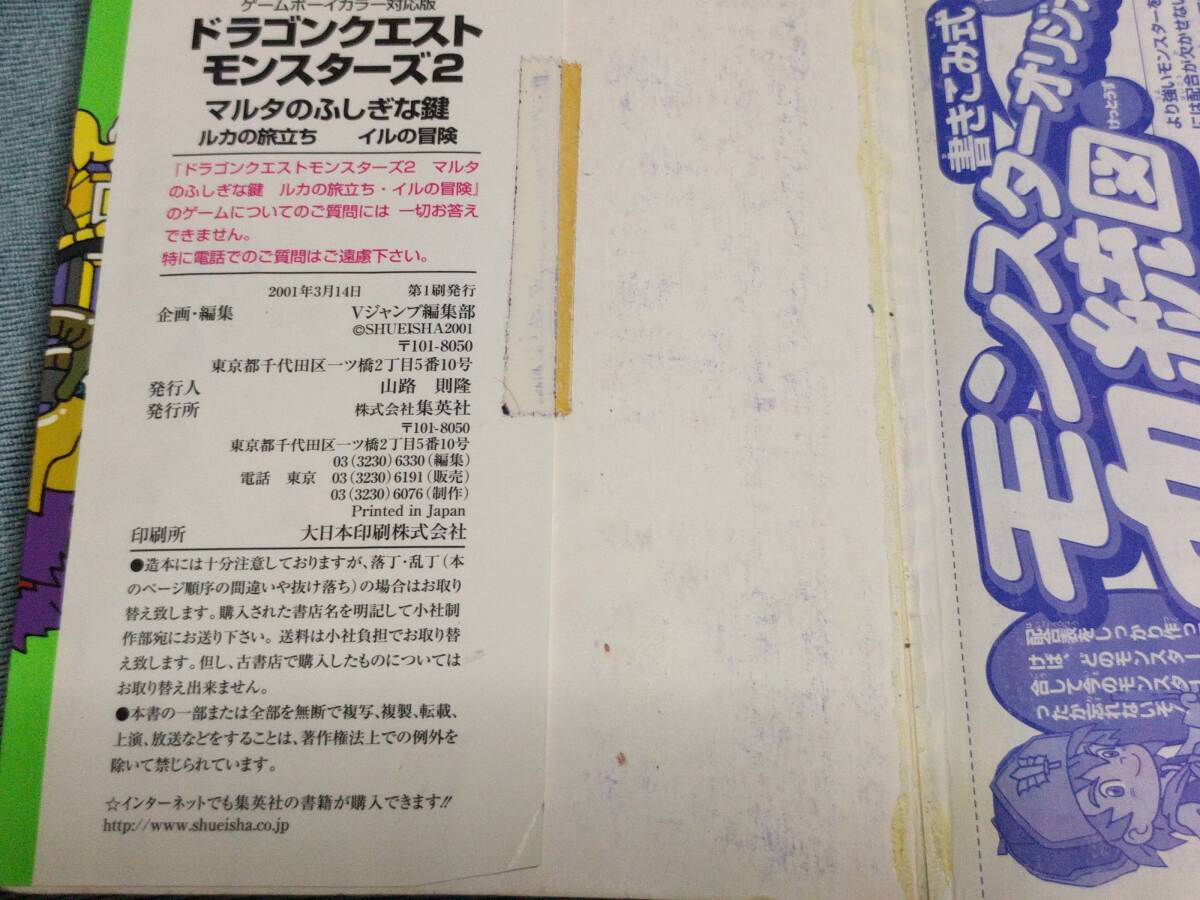 ゲームボーイカラー対応版
ドラゴンクエスト
モンスターズ2
マルタのふしぎな鍵
ルカの旅立ち　イルの冒険
『ドラゴンクエストモンスターズ2　マルタ
のふしぎな鍵　ルカの旅立ち・イルの冒険』
のゲームについてのご質問には 一切お答え
できません。
特に電話でのご質問はご遠慮下さい。
2001年3月14日　第1刷発行
企画・編集　Vジャンプ編集部
©SHUEISHA2001
〒101-8050
東京都千代田区一ツ橋2丁目5番10号
発行人　山路　則隆
発行所　株式会社集英社
〒101-8050
東京都千代田区一ツ橋2丁目5番10号
03(3230)6330(編集)
電話　東京　03(3230)6191(販売)
03(3230)6076(制作)
Printed in Japan
印刷所　大日本印刷株式会社
●造本には十分注意しておりますが、落丁・乱丁(本
のページ順序の間違いや抜け落ち)の場合はお取り
替え致します。購入された書店名を明記して小社制
作部宛にお送り下さい。送料は小社負担でお取り替
え致します。但し、古書店で購入したものについては
お取り替え出来ません。
●本書の一部または全部を無断で複写、複製、転載、
上演、放送などをすることは、著作権法上での例外を
除いて禁じられています。
☆インターネットでも集英社の書籍が購入できます!!
http://www.shueisha.co.jp
書きこみ式
モンスターオリジ
けっとうず
統図
より強いモンスターを
には配合が欠かせない
配合表をしっかり作っ
けば、どのモンスター
合して今のモンスター
ったか忘れないぞ!